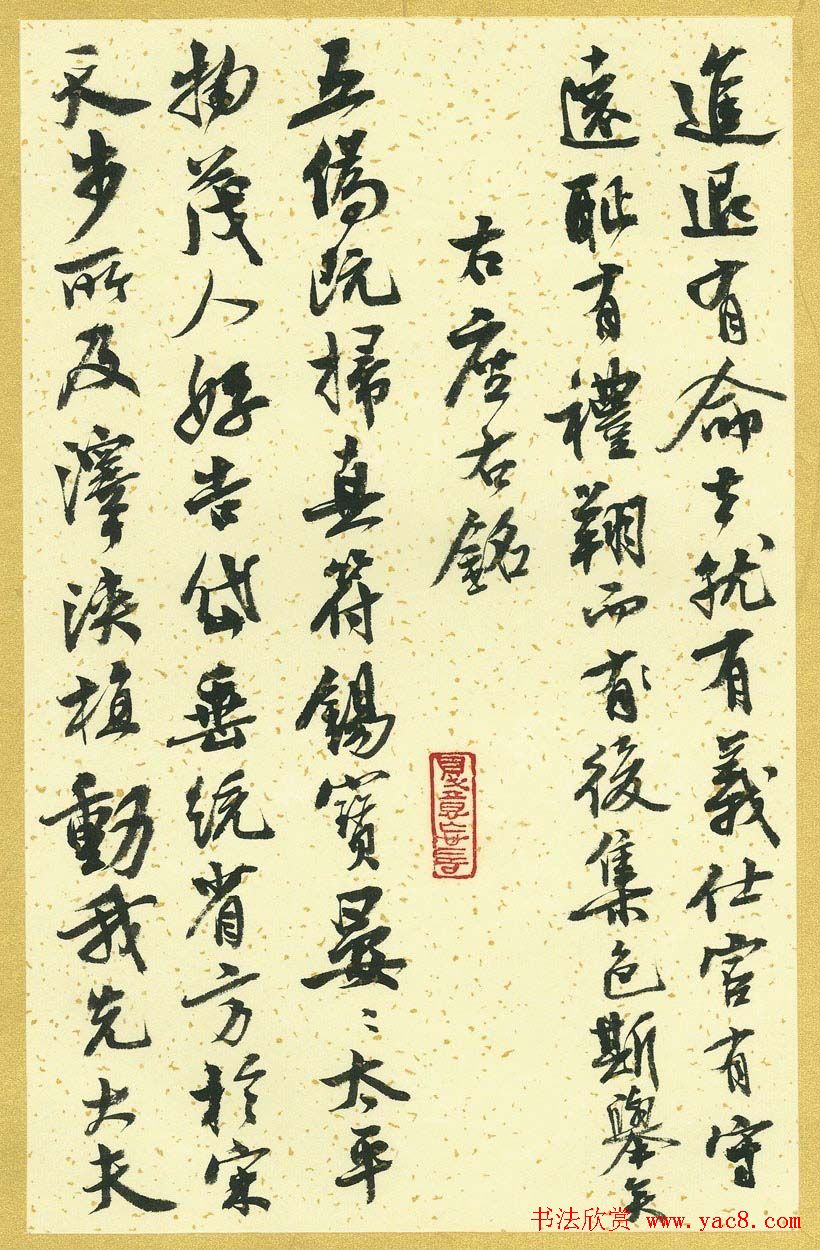 進退有命去就有義仕宦有守
遠耻有禮翔而有後集色斯舉矣
右座右銘
五僞既掃真符錫寶晏〻太平
物茂人好告岱垂統省方於宋
天步所及澤浹植動我先大夫
书法欣赏 www.yac8.com